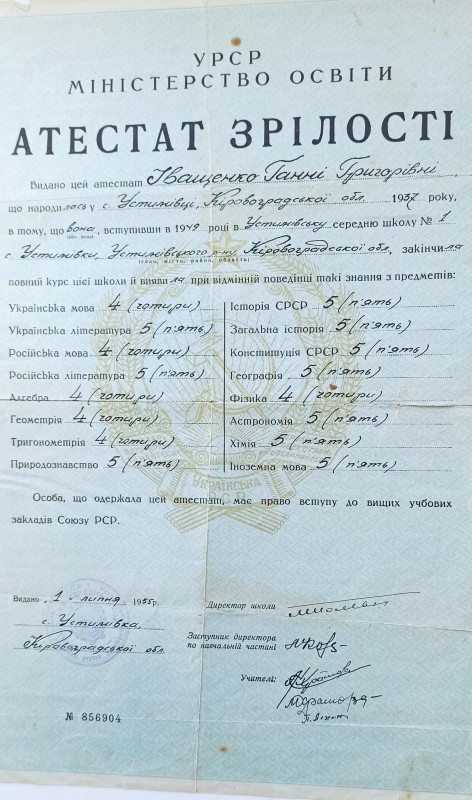 УРСР
МІНІСТЕРСТВО ОСВІТИ
АТЕСТАТ ЗРІЛОСТІ
Видано цей атестат Іващенко Ганні Григорівні
що народилась у с. Устимівці, Кіровоградської обл. 1937 року,
в тому, що вона, вступивши в 1949 році в Устимівську середню школу № 1
(він, вона)
с. Устимівки, Устимівського р-ну, Кіровоградської обл, закінчила
(село, місто, район, область)
повний курс цієї школи й виявила при відмінній поведінці такі знання з предметів:
Українська мова 4 (чотири) Історія СРСР 5 (п'ять)
Українська література 5 (п'ять) Загальна історія 5 (п'ять)
Російська мова 4 (чотири) Конституція СРСР 5 (п'ять)
Російська література 5 (п'ять) Географія 5 (п'ять)
Алгебра 4 (чотири) Фізика 4 (чотири)
Геометрія 4 (чотири) Астрономія 5 (п'ять)
Тригонометрія 4 (чотири) Хімія 5 (п'ять)
Природознавство 5 (п'ять) Іноземна мова 5 (п'ять)
УКРАЇНСЬКА
Р С Р
Особа, що одержала цей атестат, має право вступу до вищих учбових
закладів Союзу РСР.
Видано 1 - липня 1955р. Директор школи
с. Устимівка,
Кіровоградської обл. Заступник директора
по навчальній частині
Учителі:
№ 856904